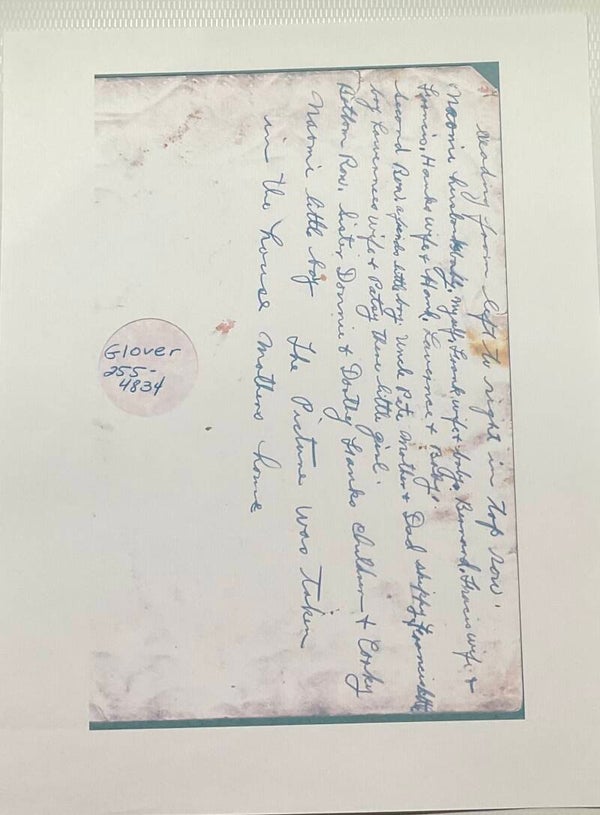 Reading from left to right in top row.
Naomi husband Walt, myself, Frank wife & baby, Bernard, Francis wife &
Francis, Hanks wife & Hank, Lawrence & Betty.
Second Row, a friends little boy. Uncle Pete Mother & Dad skippy Francis little
boy Lawrences wife & Patsy there little girl.
Bottom Row. Sister Donnie & Dorthy Franks children & Corky
Naomi little boy The Picture was taken
in the house Mothers home
Glover
255-
4834